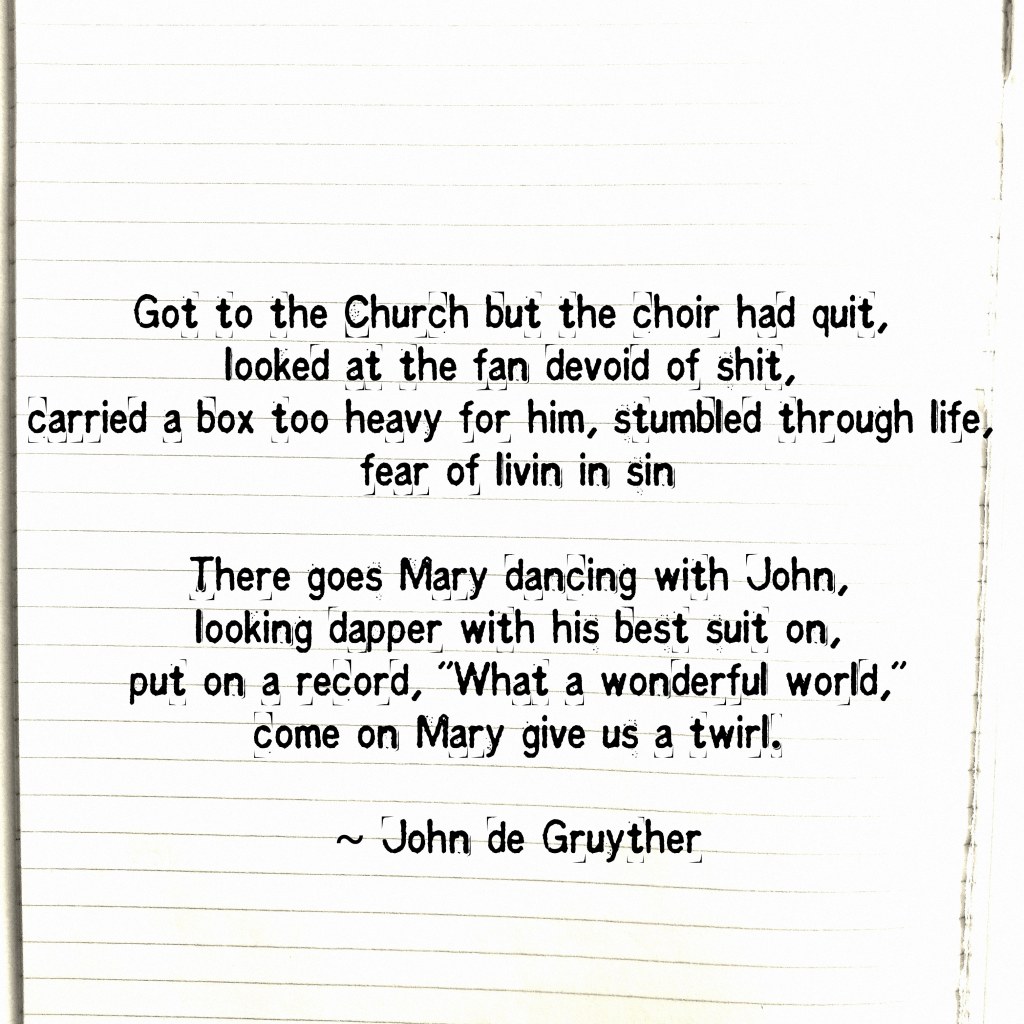 Got to the Church but the choir had quit,
looked at the fan devoid of shit,
carried a box too heavy for him, stumbled through life,
fear of livin in sin
There goes Mary dancing with John,
looking dapper with his best suit on,
put on a record, "What a wonderful world,"
come on Mary give us a twirl.
~ John de Gruyther